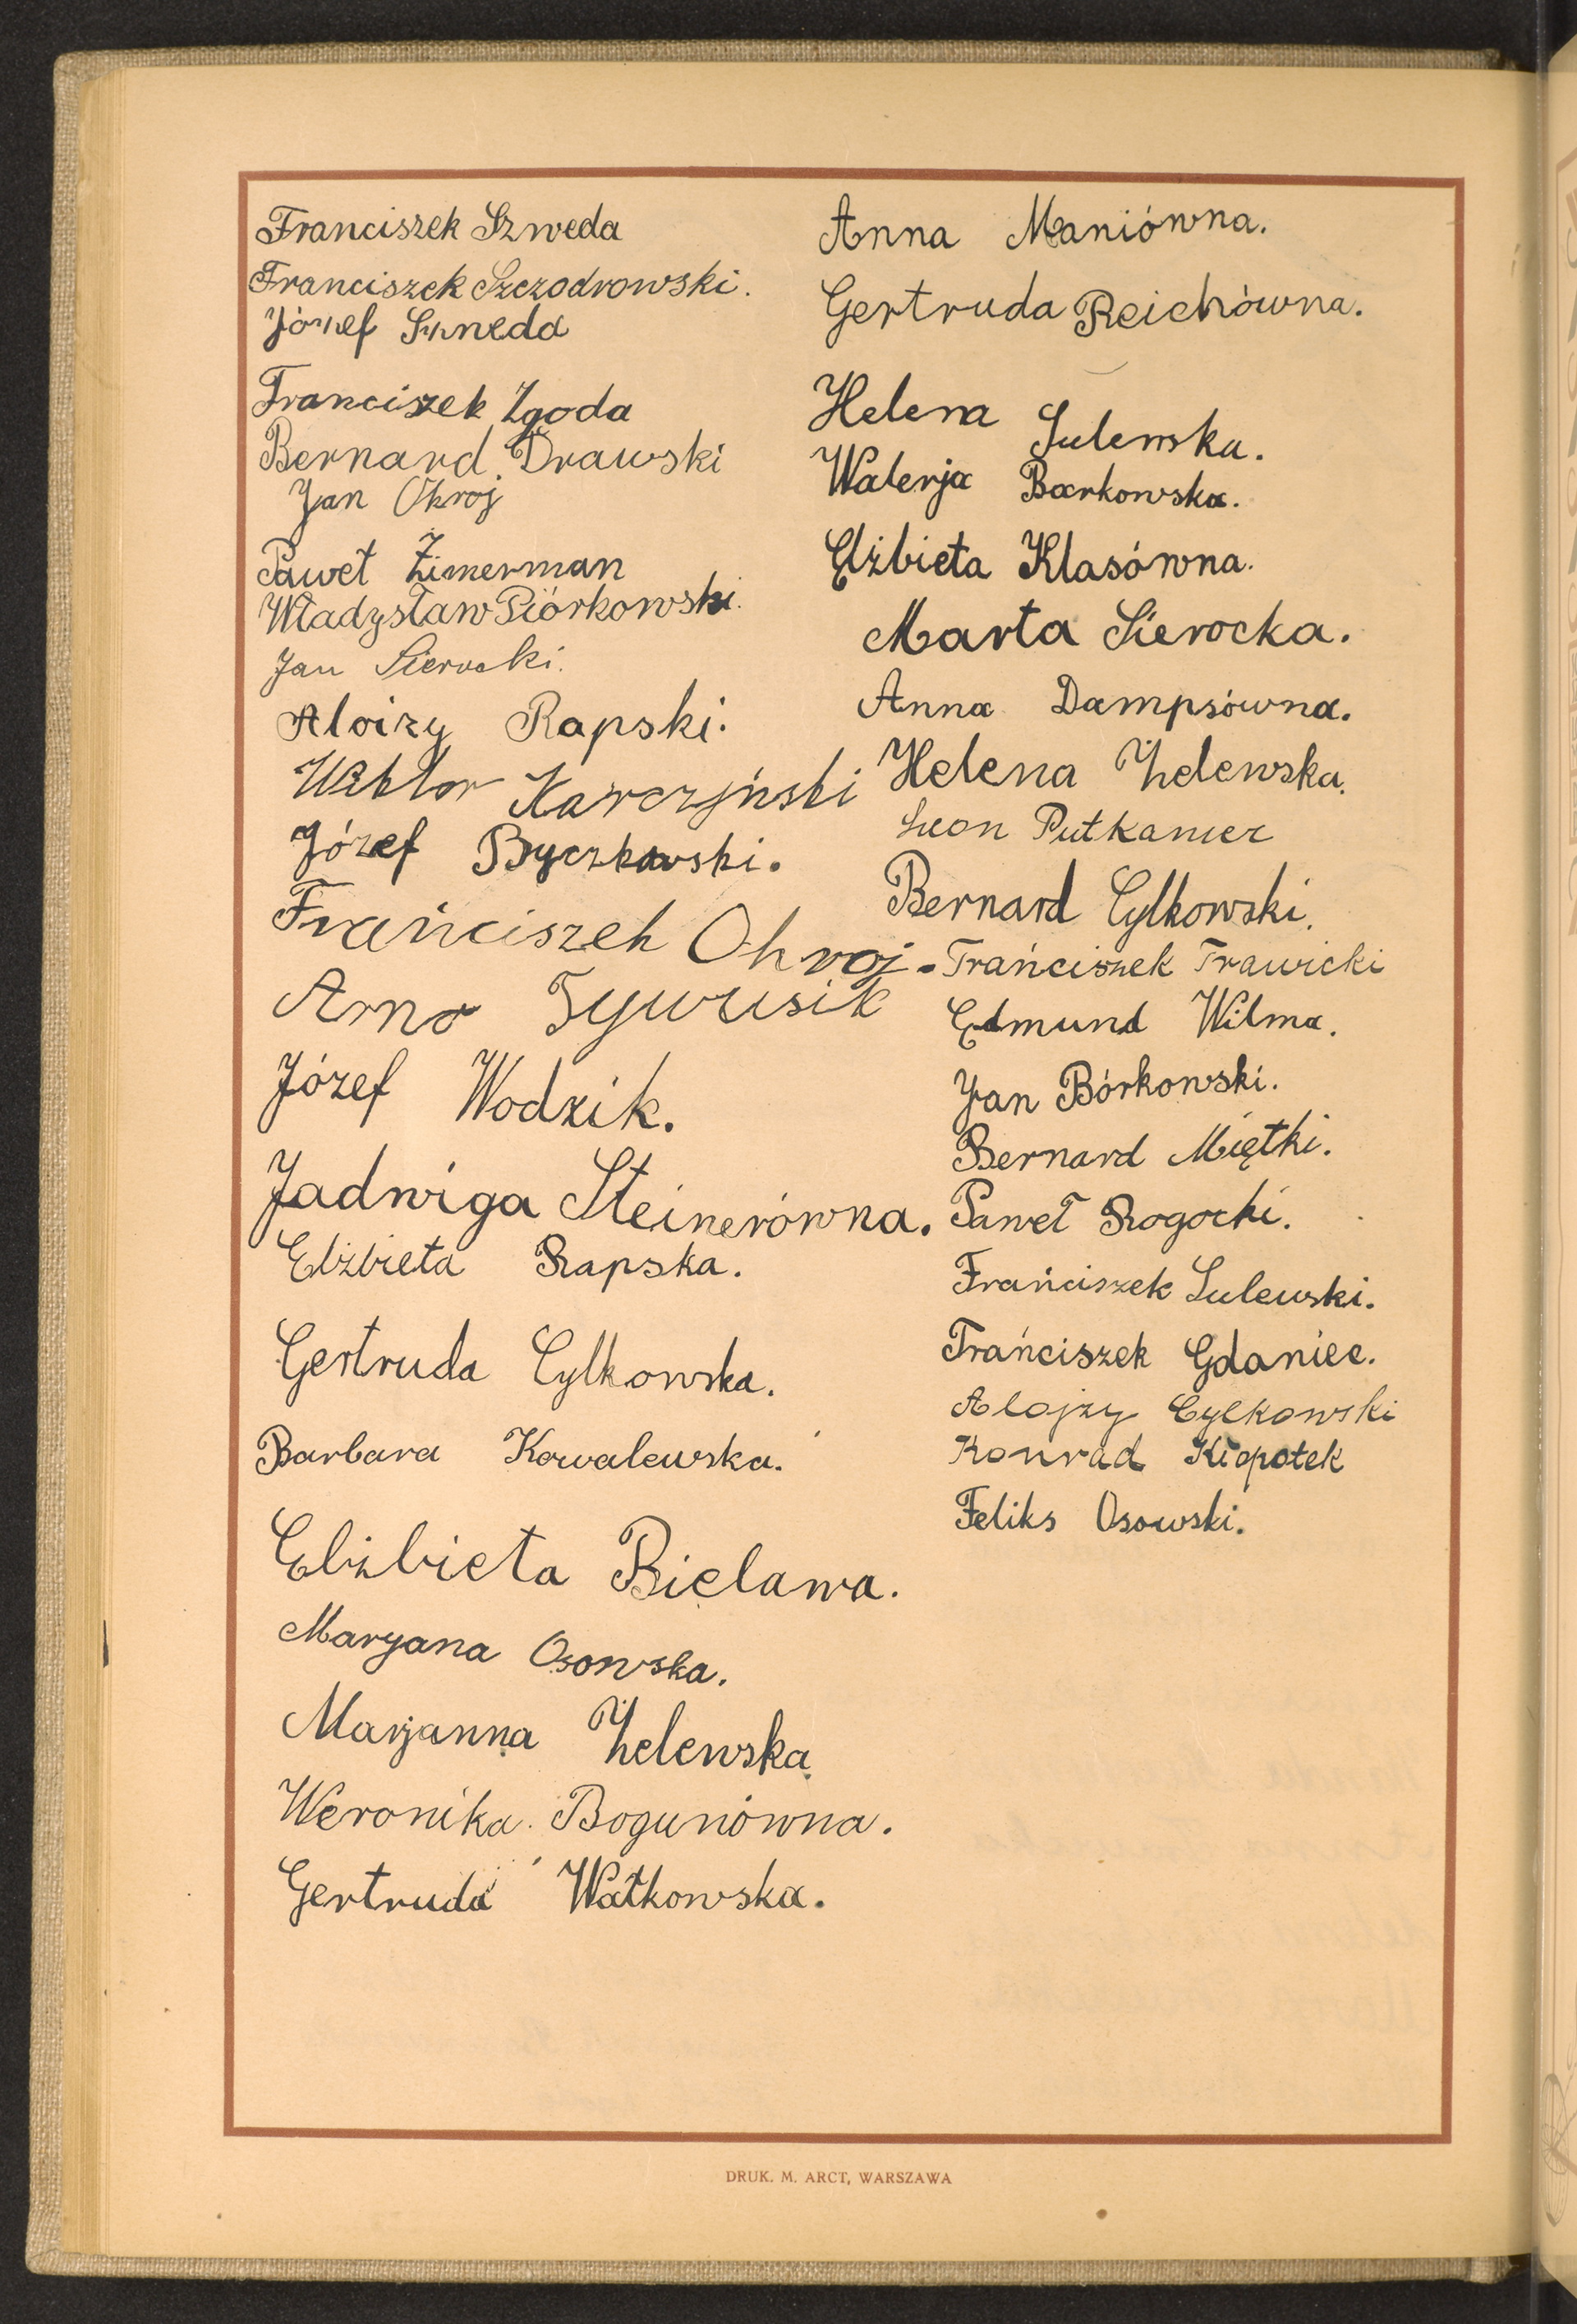 Franciszek Szweda
Franciszek Szczodrowski.
Józef Szweda
Franciszek Zgoda
Bernard Drawski
Jan Okroj
Paweł Zimerman
Władysław Piórkowski.
Jan Sierocki.
Aloizy Rapski.
Wiktor Karczyński
Józef Byczkowski.
Frańciszek Okroj.
Arno
Józef Wodzik.
Jadwiga Steinerówna.
Elżbieta Rapska.
Gertruda Cylkowska.
Barbara Kowalewska.
Elżbieta Bielawa.
Maryana Osowska.
Marjanna Żelewska
Weronika Bogunówna.
Gertruda Watkowska.
Anna Maniówna.
Gertruda Reichówna.
Helena Sulewska.
Walerja Barkowska.
Elżbieta Klasówna.
Marta Sierocka.
Anna Dampsówna.
Helena Żelewska.
Leon Putkamer
Bernard Cylkowski.
Frańciszek Trawicki
Edmund Wilma.
Jan Bórkowski.
Bernard Miętki.
Paweł Rogocki.
Frańciszek Sulewski.
Frańciszek Gdaniec.
Alojzy Cylkowski
Konrad Kłopotek
Feliks Osowski.
DRUK. M. ARCT, WARSZAWA